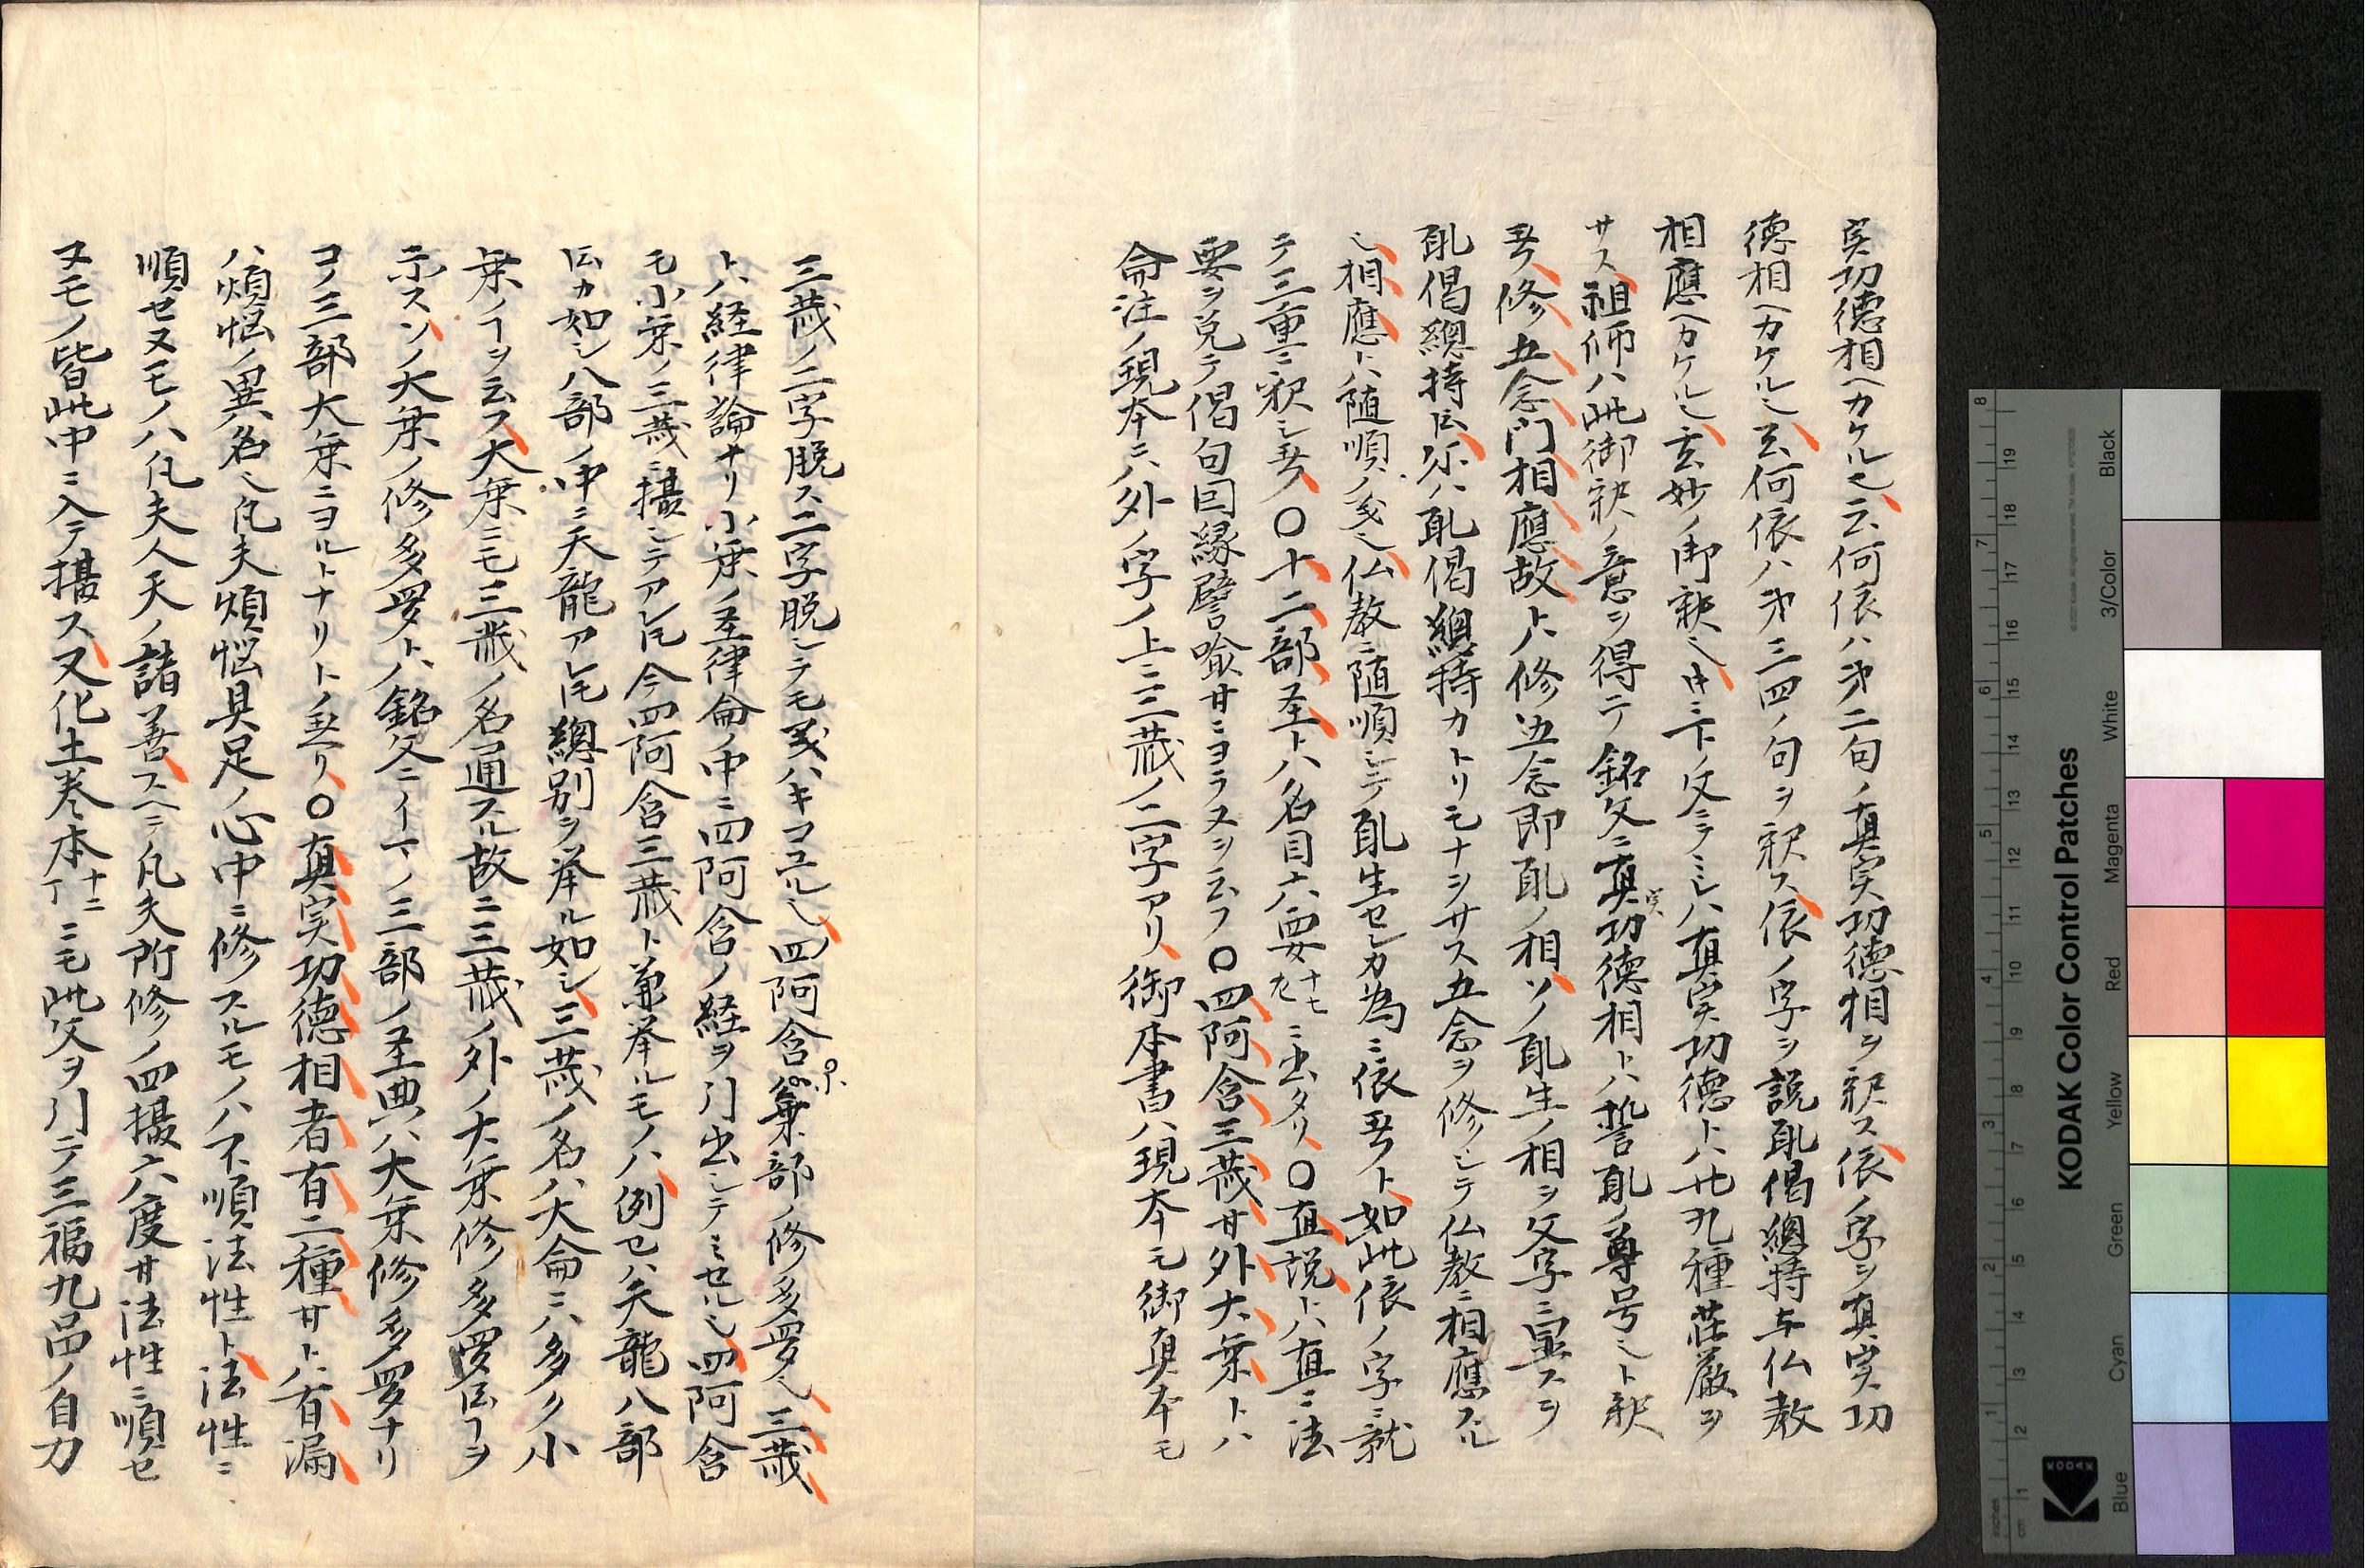 実功徳相ヘカケル也云何依ハ第二句ノ真実功徳相ヲ釈ス依ノ字ヲ真実功
徳相ヘカケル也云何依ハ第三四ノ句ヲ釈ス依ノ字ヲ説願偈總持与仏教
相應ヘカケル也玄妙ノ御釈也中ニ下ノ文ニラミレハ真実功徳トハ廿九種荘厳ヲ
サス祖師ハ此御釈ノ意ヲ得テ銘文ニ真実功徳相トハ誓願ノ尊号也ト釈
玉フ修五念門相應故トハ修五念即願ノ相ソノ願生ノ相ヲ文字ニ宣スヲ
願偈總持ト云尓ハ願偈總持カトリモナヲサス五念ヲ修シテ仏教ニ相應スル
也相應トハ随順ノ義也仏教ニ随順シテ願生セシカ為ニ依玉フト如此依ノ字ニ就
テ三重ニ釈シ玉フ〇十二部経トハ名目六要十七左ニ出タリ〇直説トハ直ニ法
要ヲ説テ偈句因縁譬喩廿ニヨラヌヲ云フ〇四阿含三蔵廿外大乗トハ
命注ノ現本ニハ外ノ字ノ上ニ三蔵ノ二字アリ御本書ハ現本モ御真本モ
三蔵ノ二字脱ス二字脱シテモ義ハキコユル也四阿含ハ乗部ノ修多羅也三蔵
トハ経律論ナリ小乗ノ経律論ノ中ニ四阿含ノ経ヲ引出シテミセル也四阿含
モ小乗ノ三蔵ニ攝シテアレトモ今四阿含三蔵ト兼挙ルモノハ例セハ天龍八部
ト云カ如シ八部ノ中ニ天龍アレトモ總別ヲ挙ル如シ三蔵ノ名ハ大論ニハ多ク小
乗ノコヲ云フ大乗ニモ三蔵ノ名通スル故ニ三蔵ノ外ノ大乗修多羅ト云フヲ
示スソノ大乗ノ修多羅トハ銘文ニイマノ三部ノ経典ハ大乗修多羅ナリ
コノ三部大乗ニヨルトナリトノ玉ヘリ〇真実功徳相者有二種廿トハ有漏
ハ煩悩ノ異名也凡夫煩悩具足ノ心中ニ修スルモノハ不順法性ト法性ニ
順セヌモノハ凡夫人天ノ諸善スヘテ凡夫所修ノ四攝六度廿法性ニ順セ
ヌモノ皆此中ニ入テ攝ス又化土巻本十二丁ニモ此文ヲ引テ三福九品ノ自力
KODAK Color Control Patches
Blue Cyan Green Yellow Red Magenta White 3/Color Black